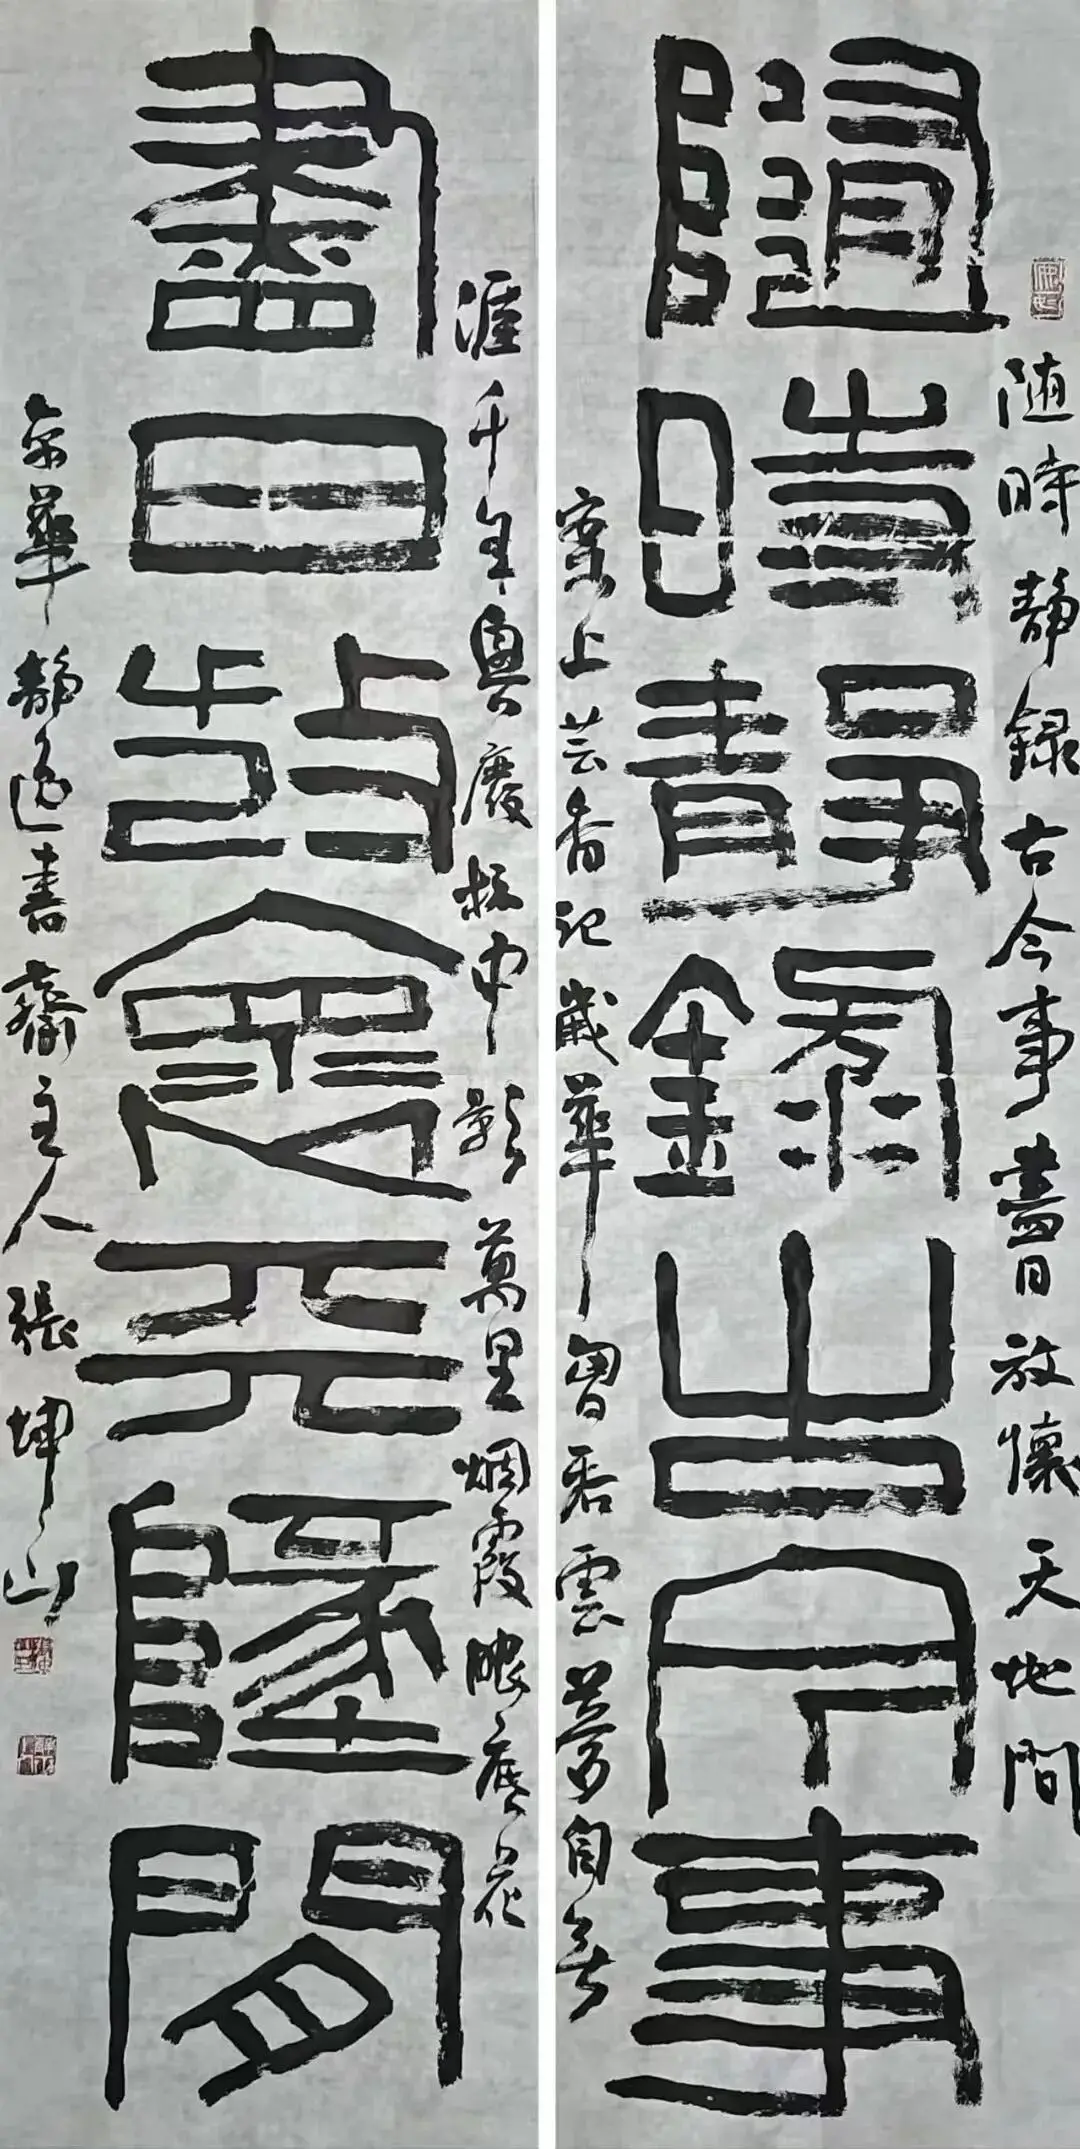 随時静録古今事盡日放懷天地間
隨時靜錄古今事
案上芸香记歲華胷吞雲夢自無
涯千年興廢杯中影萬里烟霞眼底花
盡日放懷天地間
京華静逸書齋主人張坤山